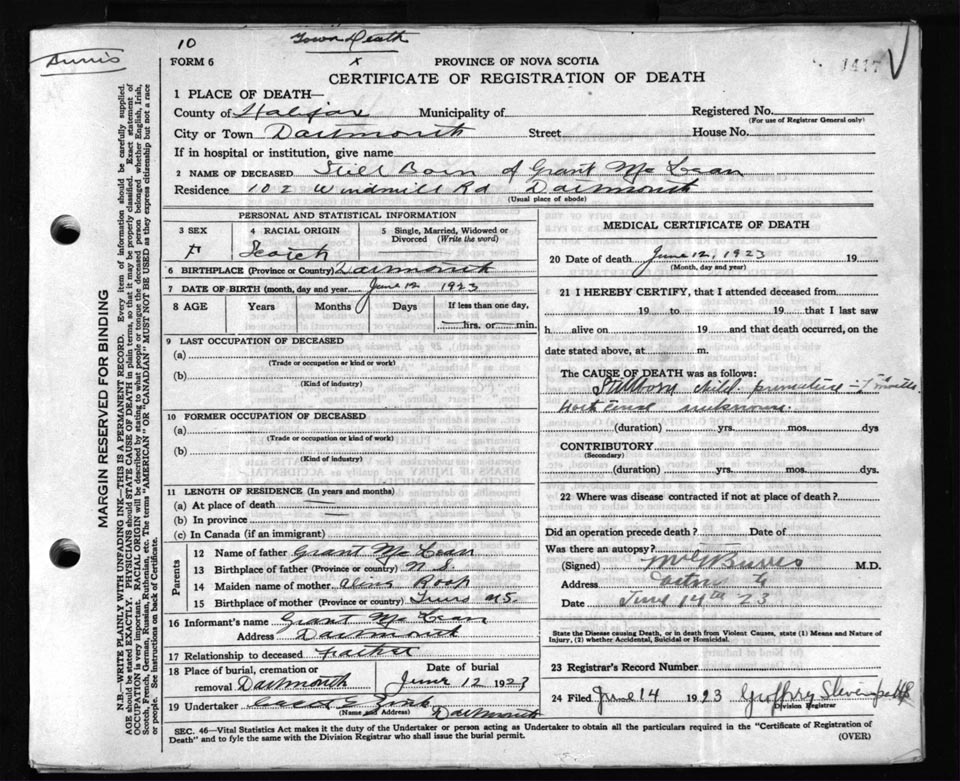 Burris
10 Town Death
FORM 6 x PROVINCE OF NOVA SCOTIA 1417 V
CERTIFICATE OF REGISTRATION OF DEATH
MARGIN RESERVED FOR BINDING
N.B.—WRITE PLAINLY WITH UNFADING INK—THIS IS A PERMANENT RECORD. Every item of information should be carefully supplied.
AGE should be stated EXACTLY. PHYSICIANS should STATE CAUSE OF DEATH in plain terms, so that it may be properly classified. Exact statement of
OCCUPATION is very important. RACIAL ORIGIN will be described by stating to what people or tongue the deceased person belonged whether English, Irish,
Scotch, French, German, Russian, Ruthenian, etc. The terms "AMERICAN" or "CANADIAN" MUST NOT BE USED as they express citizenship but not a race
or people. See instructions on back of Certificate.
1 PLACE OF DEATH—
County of Halifax Municipality of Registered No.
(For use of Registrar General only)
City or Town Dartmouth Street House No.
If in hospital or institution, give name
2 NAME OF DECEASED Still Born of Grant McLean
Residence 102 Windmill Rd Dartmouth
(Usual place of abode)
PERSONAL AND STATISTICAL INFORMATION
3 SEX 4 RACIAL ORIGIN 5 Single, Married, Widowed or
Divorced (Write the word)
F Scotch
6 BIRTHPLACE (Province or Country) Dartmouth
7 DATE OF BIRTH (month, day and year June 12 1923
8 AGE Years Months Days If less than one day,
hrs. or min.
9 LAST OCCUPATION OF DECEASED
(a)
(Trade or occupation or kind or work)
(b)
(Kind of industry)
10 FORMER OCCUPATION OF DECEASED
(a)
(Trade or occupation or kind of work)
(b)
(Kind of industry)
11 LENGTH OF RESIDENCE (In years and months)
(a) At place of death
(b) In province
(c) In Canada (if an immigrant)
Parents
12 Name of father Grant McLean
13 Birthplace of father (Province or country) N.S.
14 Maiden name of mother
15 Birthplace of mother (Province or country) Truro N.S.
16 Informant's name Grant McLean
Address Dartmouth
17 Relationship to deceased Father
18 Place of burial, cremation or Date of burial
removal Dartmouth June 12 1923
19 Undertaker Zink
(Name and Address) Dartmouth
MEDICAL CERTIFICATE OF DEATH
20 Date of death June 12, 1923 19
(Month, day and year)
21 I HEREBY CERTIFY, that I attended deceased from
19 to 19 that I last saw
h alive on 19 and that death occurred, on the
date stated above, at m.
The CAUSE OF DEATH was as follows:
Stillborn child. premature - 7 months
unknown.
(duration) yrs. mos. dys
CONTRIBUTORY
(Secondary)
(duration) yrs. mos. dys.
22 Where was disease contracted if not at place of death?
Did an operation precede death? Date of
Was there an autopsy?
(Signed) Burris M.D.
Address
Date June 14th 23
State the Disease causing Death, or in death from Violent Causes, state (1) Means and Nature of
Injury, (2) whether Accidental, Suicidal or Homicidal.
23 Registrar's Record Number
24 Filed June 14 1923
Division Registrar
SEC. 46—Vital Statistics Act makes it the duty of the Undertaker or person acting as Undertaker to obtain all the particulars required in the "Certificate of Registration of
Death" and to fyle the same with the Division Registrar who shall issue the burial permit. (OVER)